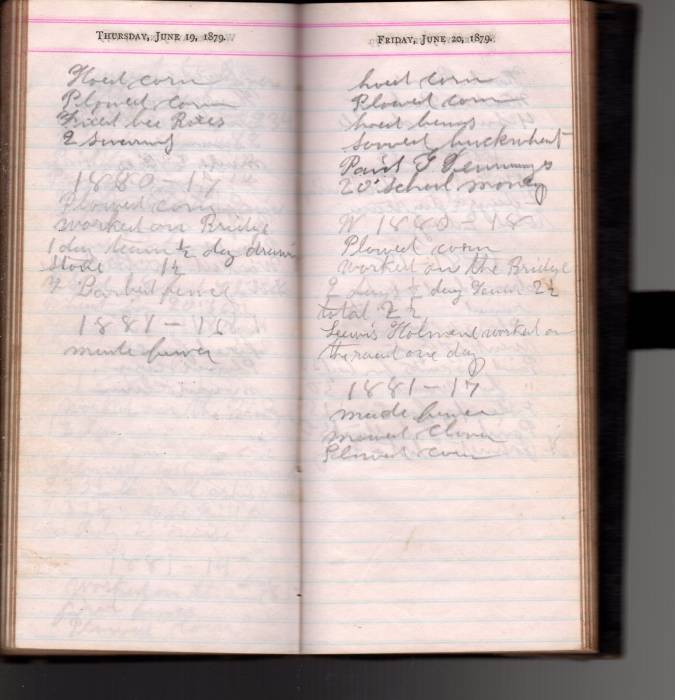 THURSDAY, JUNE 19, 1879.
Hoed corn
Plowed corn
Fixed bee Boxes
2 swarms
1880 - 17
Plowed corn
worked on Bridge
1 day team ½ day drawin
stone 1½
1881 - 18
made fence
FRIDAY, JUNE 20, 1879.
hoed corn
Plowed corn
hoed beans
sowed buckwheat
Paid Jennings
20 school money
1880 - 18
Plowed corn
worked on the Bridge
day 2½
total 2½
Lewis Holmes worked on
the road one day
1881 - 17
made fence
mowed Clover
Plowed corn